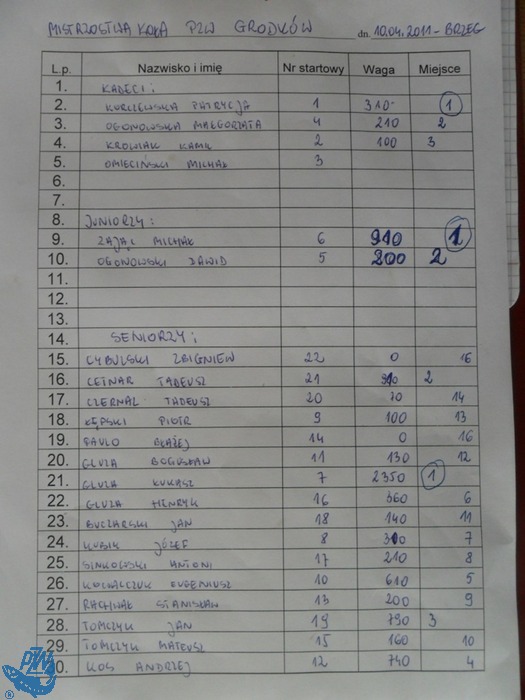 MISTRZOSTWA KOŁA PZW GRODKÓW dn. 10.04.2011 - BRZEG
L.p. Nazwisko i imię Nr startowy Waga Miejsce
1. KADECI:
2. KORCZEWSKA PATRYCJA 1 310 1
3. OGONOWSKA MAŁGORZATA 4 210 2
4. KROWIAK KAMIL 2 100 3
5. OMIECIŃSKI MICHAŁ 3
6.
7.
8. JUNIORZY:
9. ZAJĄC MICHAŁ 6 910 1
10. OGONOWSKI DAWID 5 200 2
11.
12.
13.
14. SENIORZY:
15. CYBULSKI ZBIGNIEW 22 0 16
16. CETNAR TADEUSZ 21 910 2
17. CZERNAL TADEUSZ 20 70 14
18. KĘPSKI PIOTR 9 100 13
19. PAVLO BŁAŻEJ 14 0 16
20. GLUZA BOGUSŁAW 11 130 12
21. GLUZA ŁUKASZ 7 2350 1
22. GLUZA HENRYK 16 560 6
23. BUCZARSKI JAN 18 140 11
24. KUBIK JÓZEF 8 300 7
25. SINKOWSKI ANTONI 17 210 8
26. KOWALCZUK EUGENIUSZ 10 610 5
27. STANISŁAW 13 200 9
28. TOMCZYK JAN 19 790 3
29. TOMCZYK MATEUSZ 15 160 10
30. KOS ANDRZEJ 12 740 4
PZW